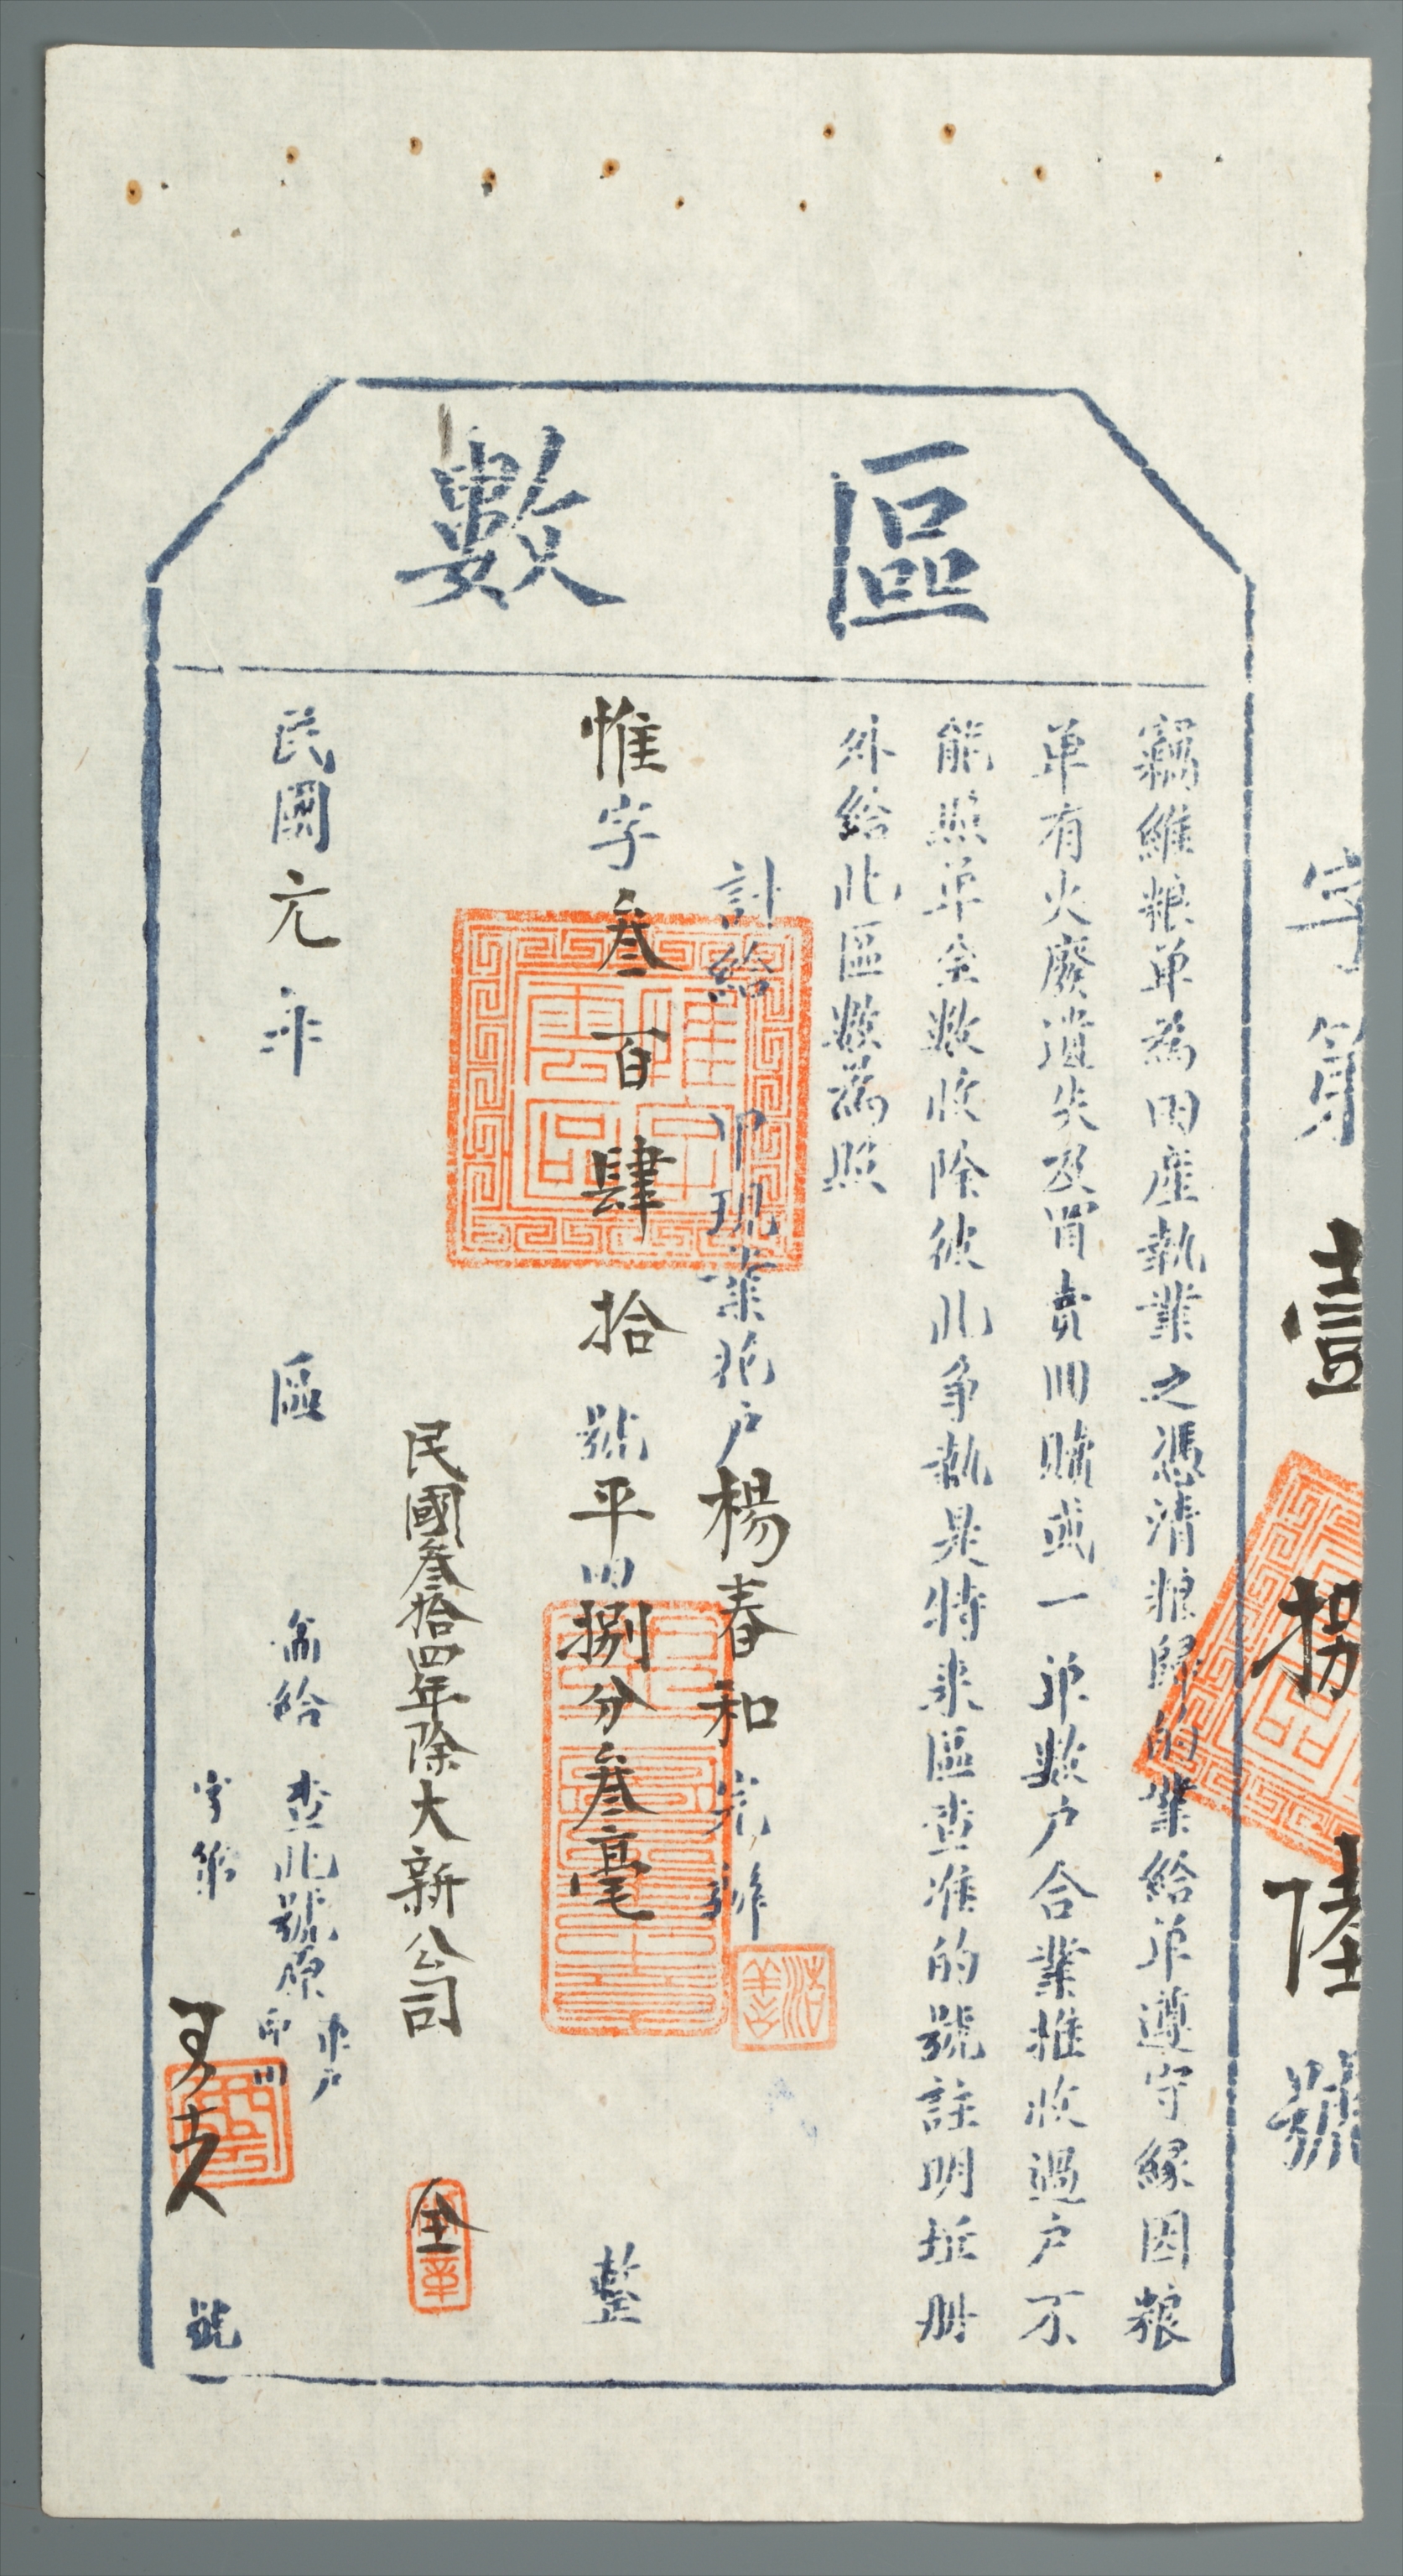 字第壹拐陸號
區數
竊維粮单為田產執業之憑清粮歸的業給单遵守緣因粮
单有火廢遺失及買賣回贖或一单數户合業推收過户不
能照单全數收除彼此爭執是特来區查准的號註明坵册
外給此區數為照
計給
甲現業花户楊春和完辦
惟字叁百肆拾號平田捌分叁毫整
民國叁拾四年除大新公司全
民國元年區給查此號原单户田
字第號
浩善